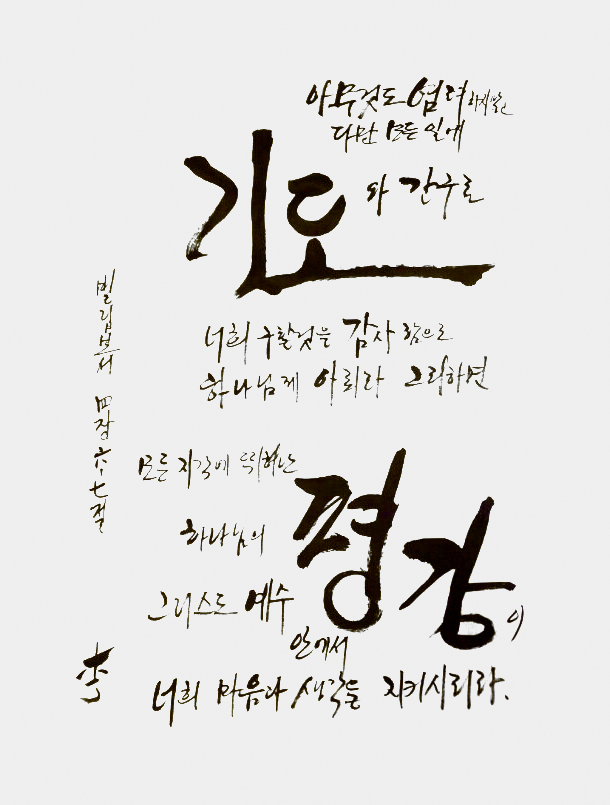 아무것도 염려하지말고
다만 모든 일에
기도와 간구로
너희 구할것을 감사함으로
하나님께 아뢰라 그리하면
모든 지각에 뛰어난
하나님의 평강이
그리스도 예수
안에서
너희 마음과 생각을 지키시리라.
빌립보서 四장 六·七절
李